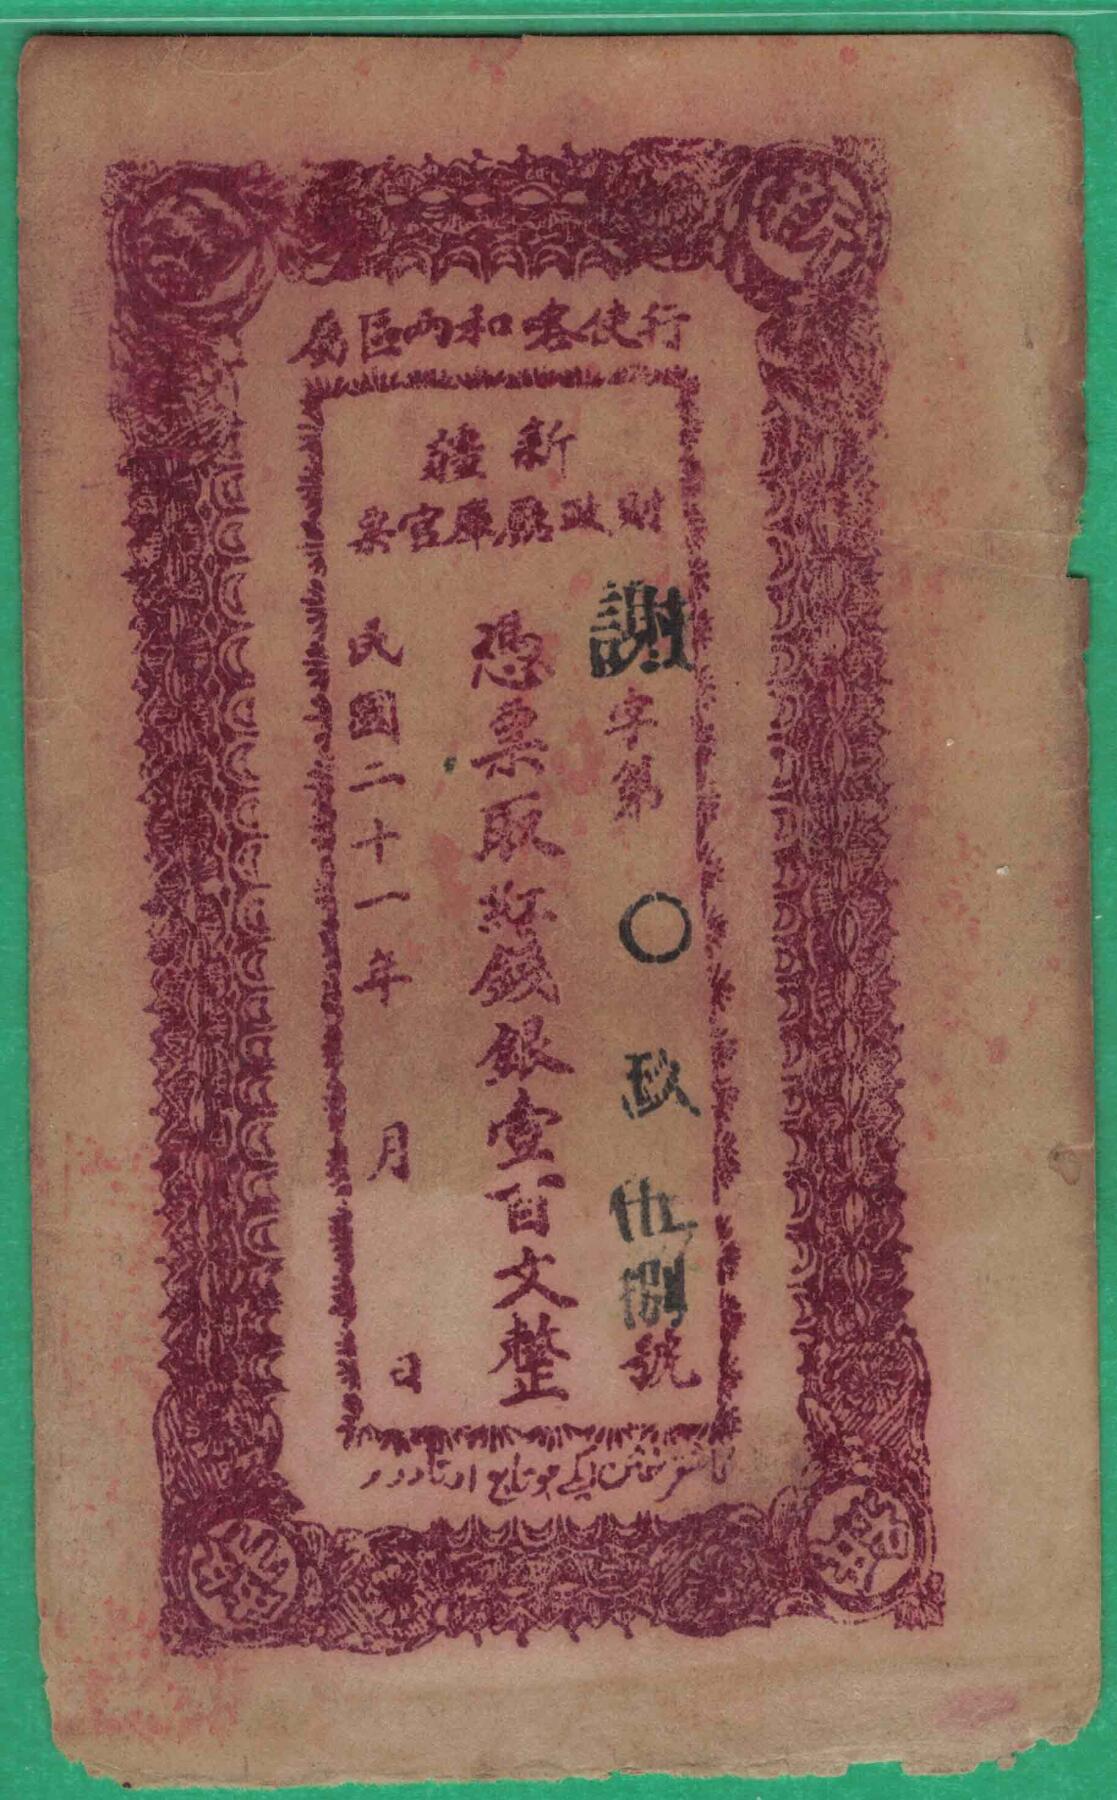 新
行使喀和兩區屬
新疆
財政廳庫官票
謝字第〇玖伍捌號
憑票取紅錢銀壹百文整
民國二十一年 月 日